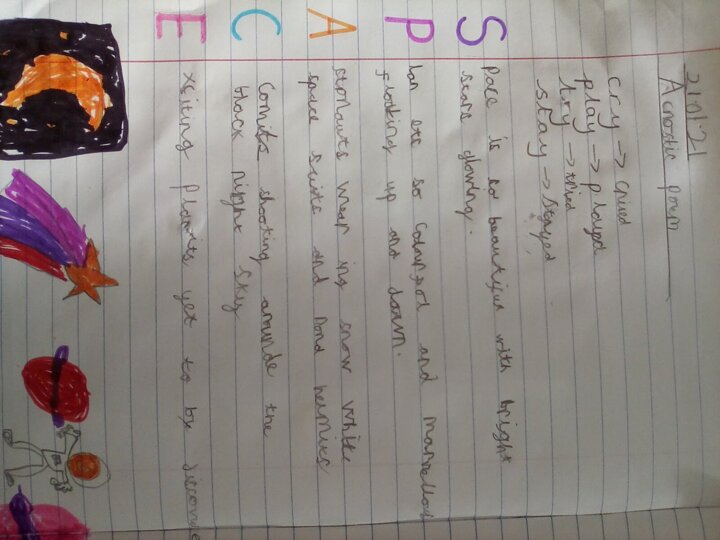 21.01.21
Acrostic poem
cry → cried
play → played
try → tried
stay → stayed
S pace is so beautiful with bright
stars glowing.
P lan ets so Colourfol and marvellous
floating up and dawn.
A stonauts wear ing snow white
space suits and rond helmites
C omits shooting arounde the
black night sky
E xsiting planits yet to by discove